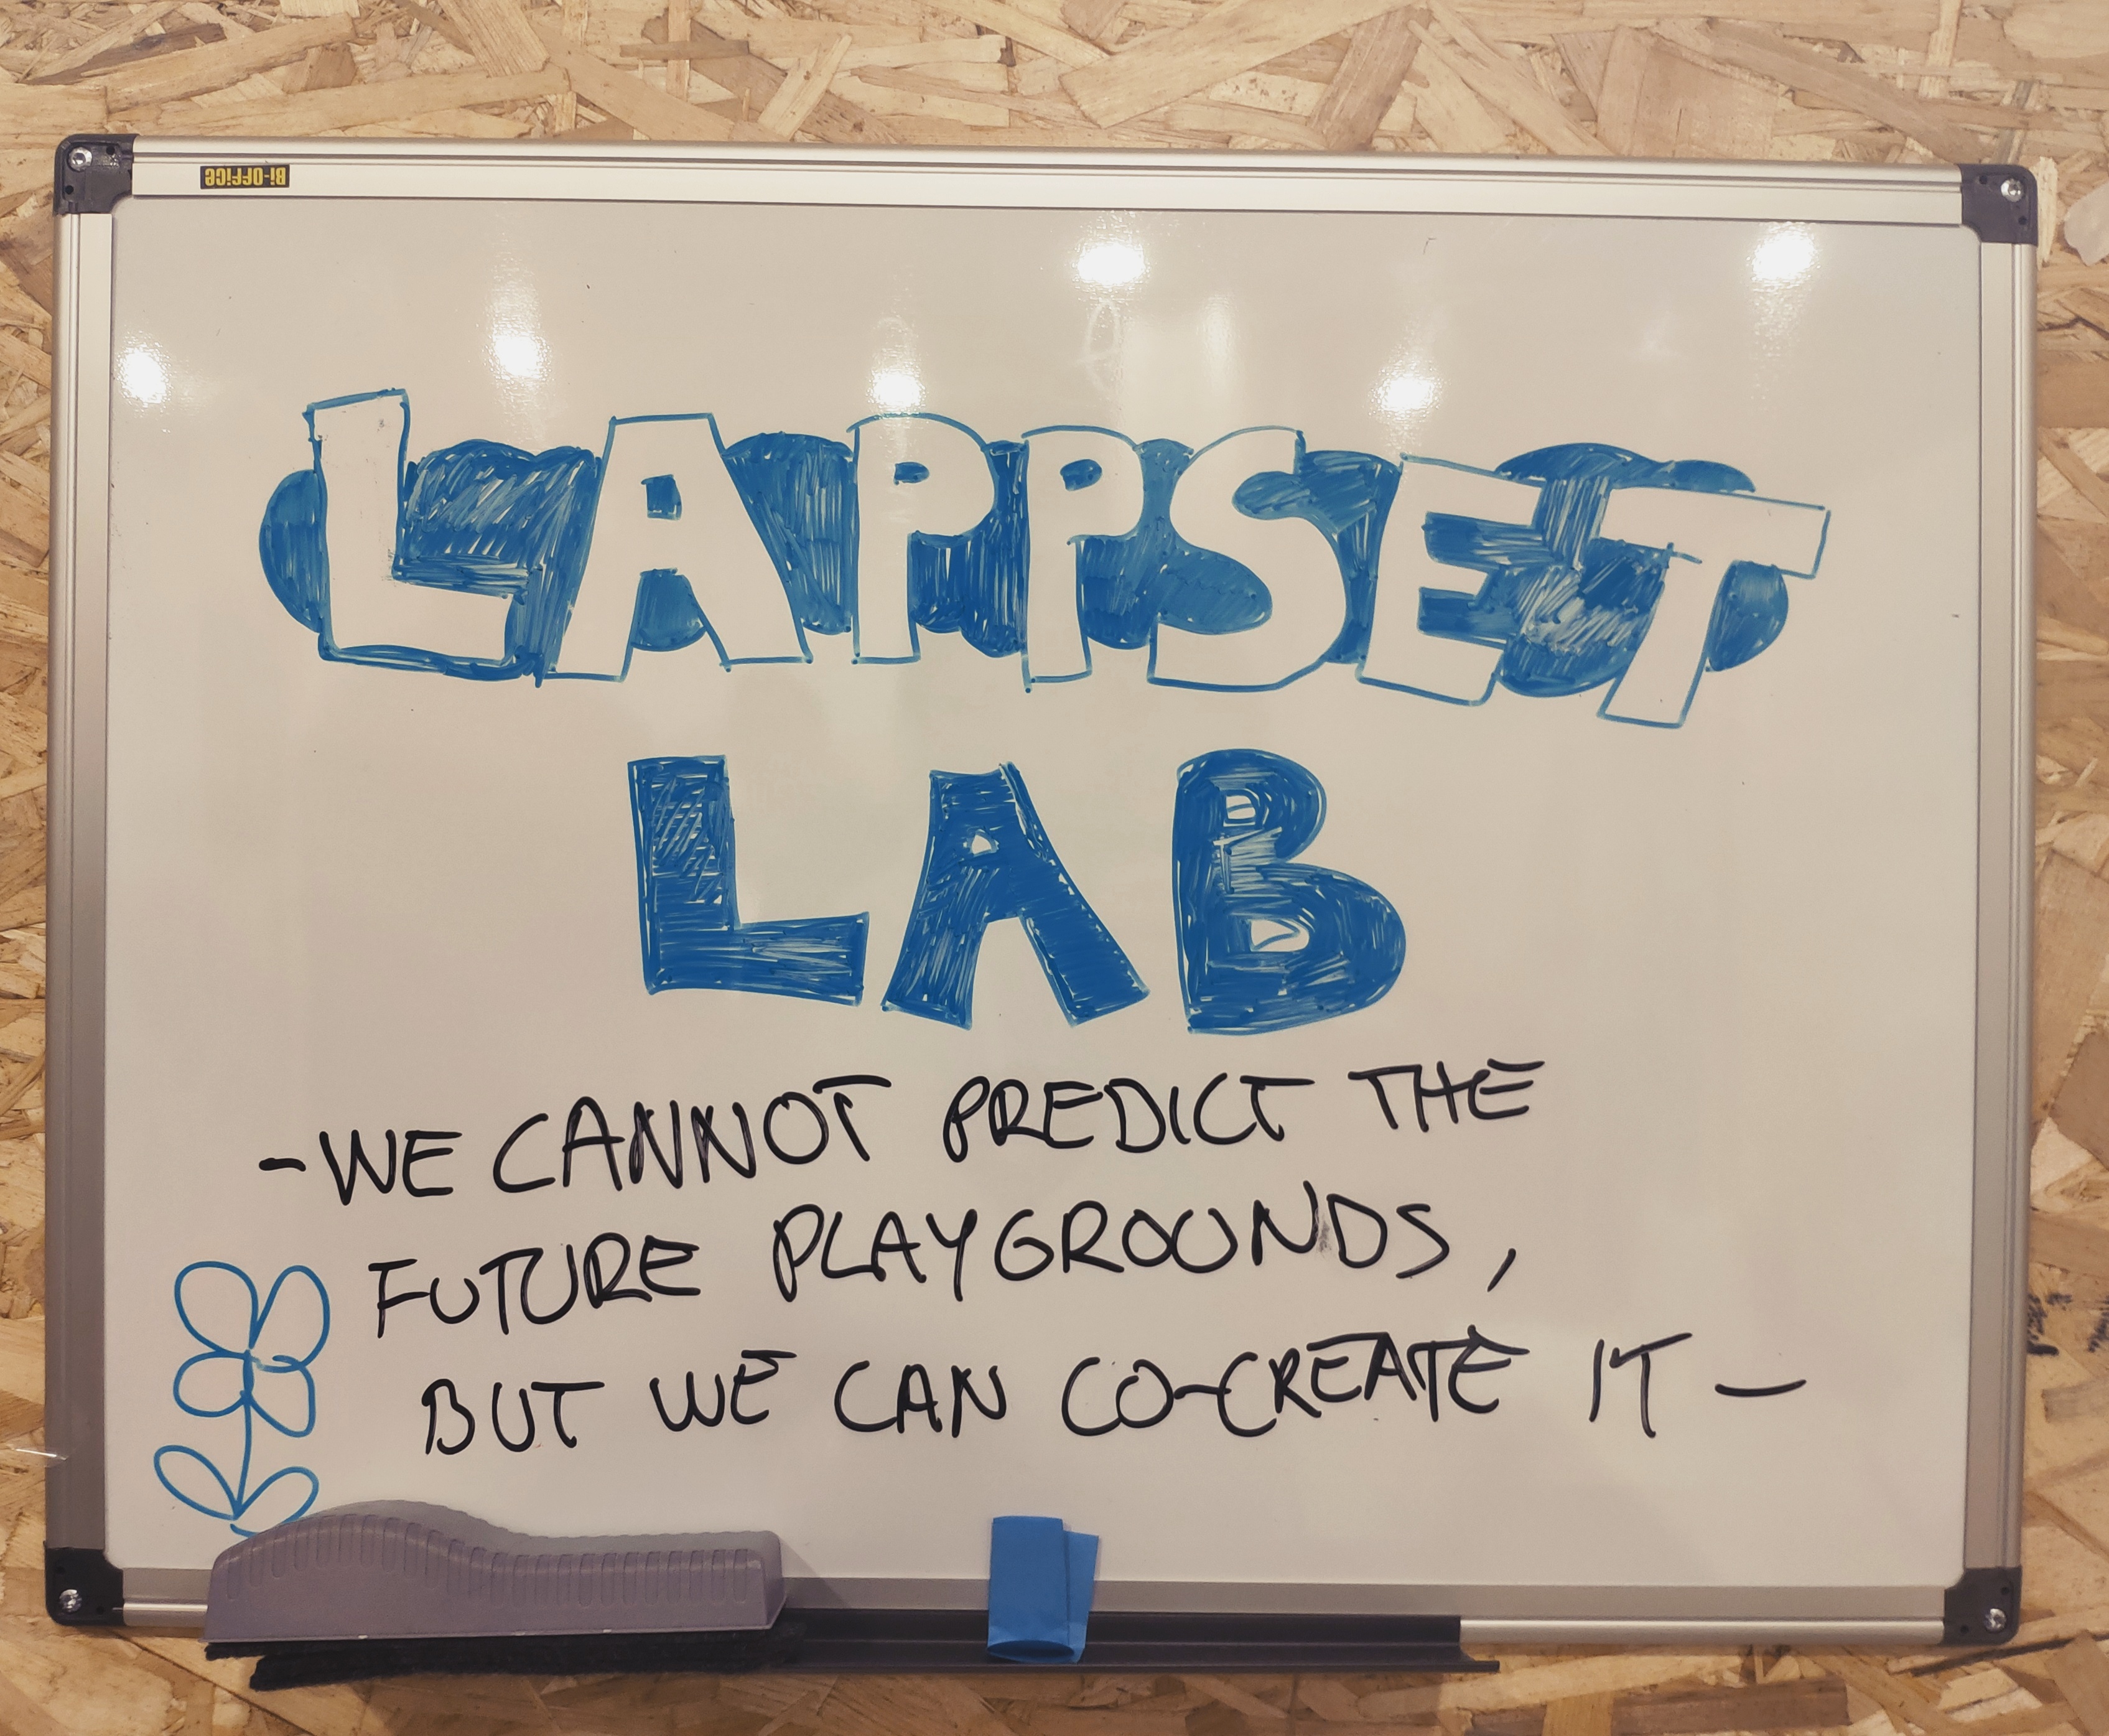 Bi-OFFiCE
LAPPSET
LAB
-WE CANNOT PREDICT THE
FUTURE PLAYGROUNDS,
BUT WE CAN CO-CREATE IT-